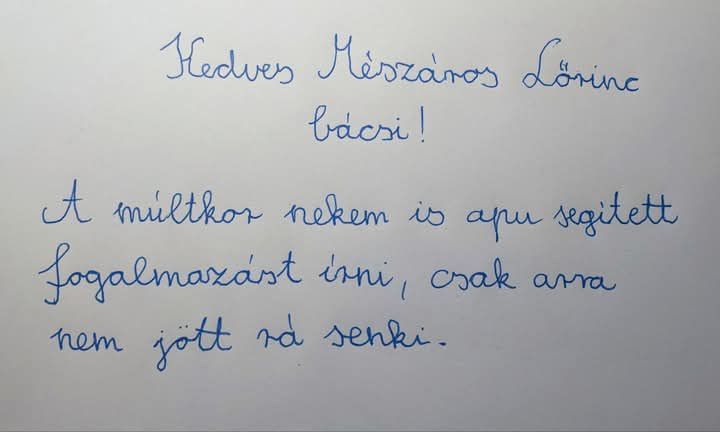 Kedves Mészáros Lőrinc
bácsi!
A múltkor nekem is apu segített
fogalmazást írni, csak arra
nem jött rá senki.